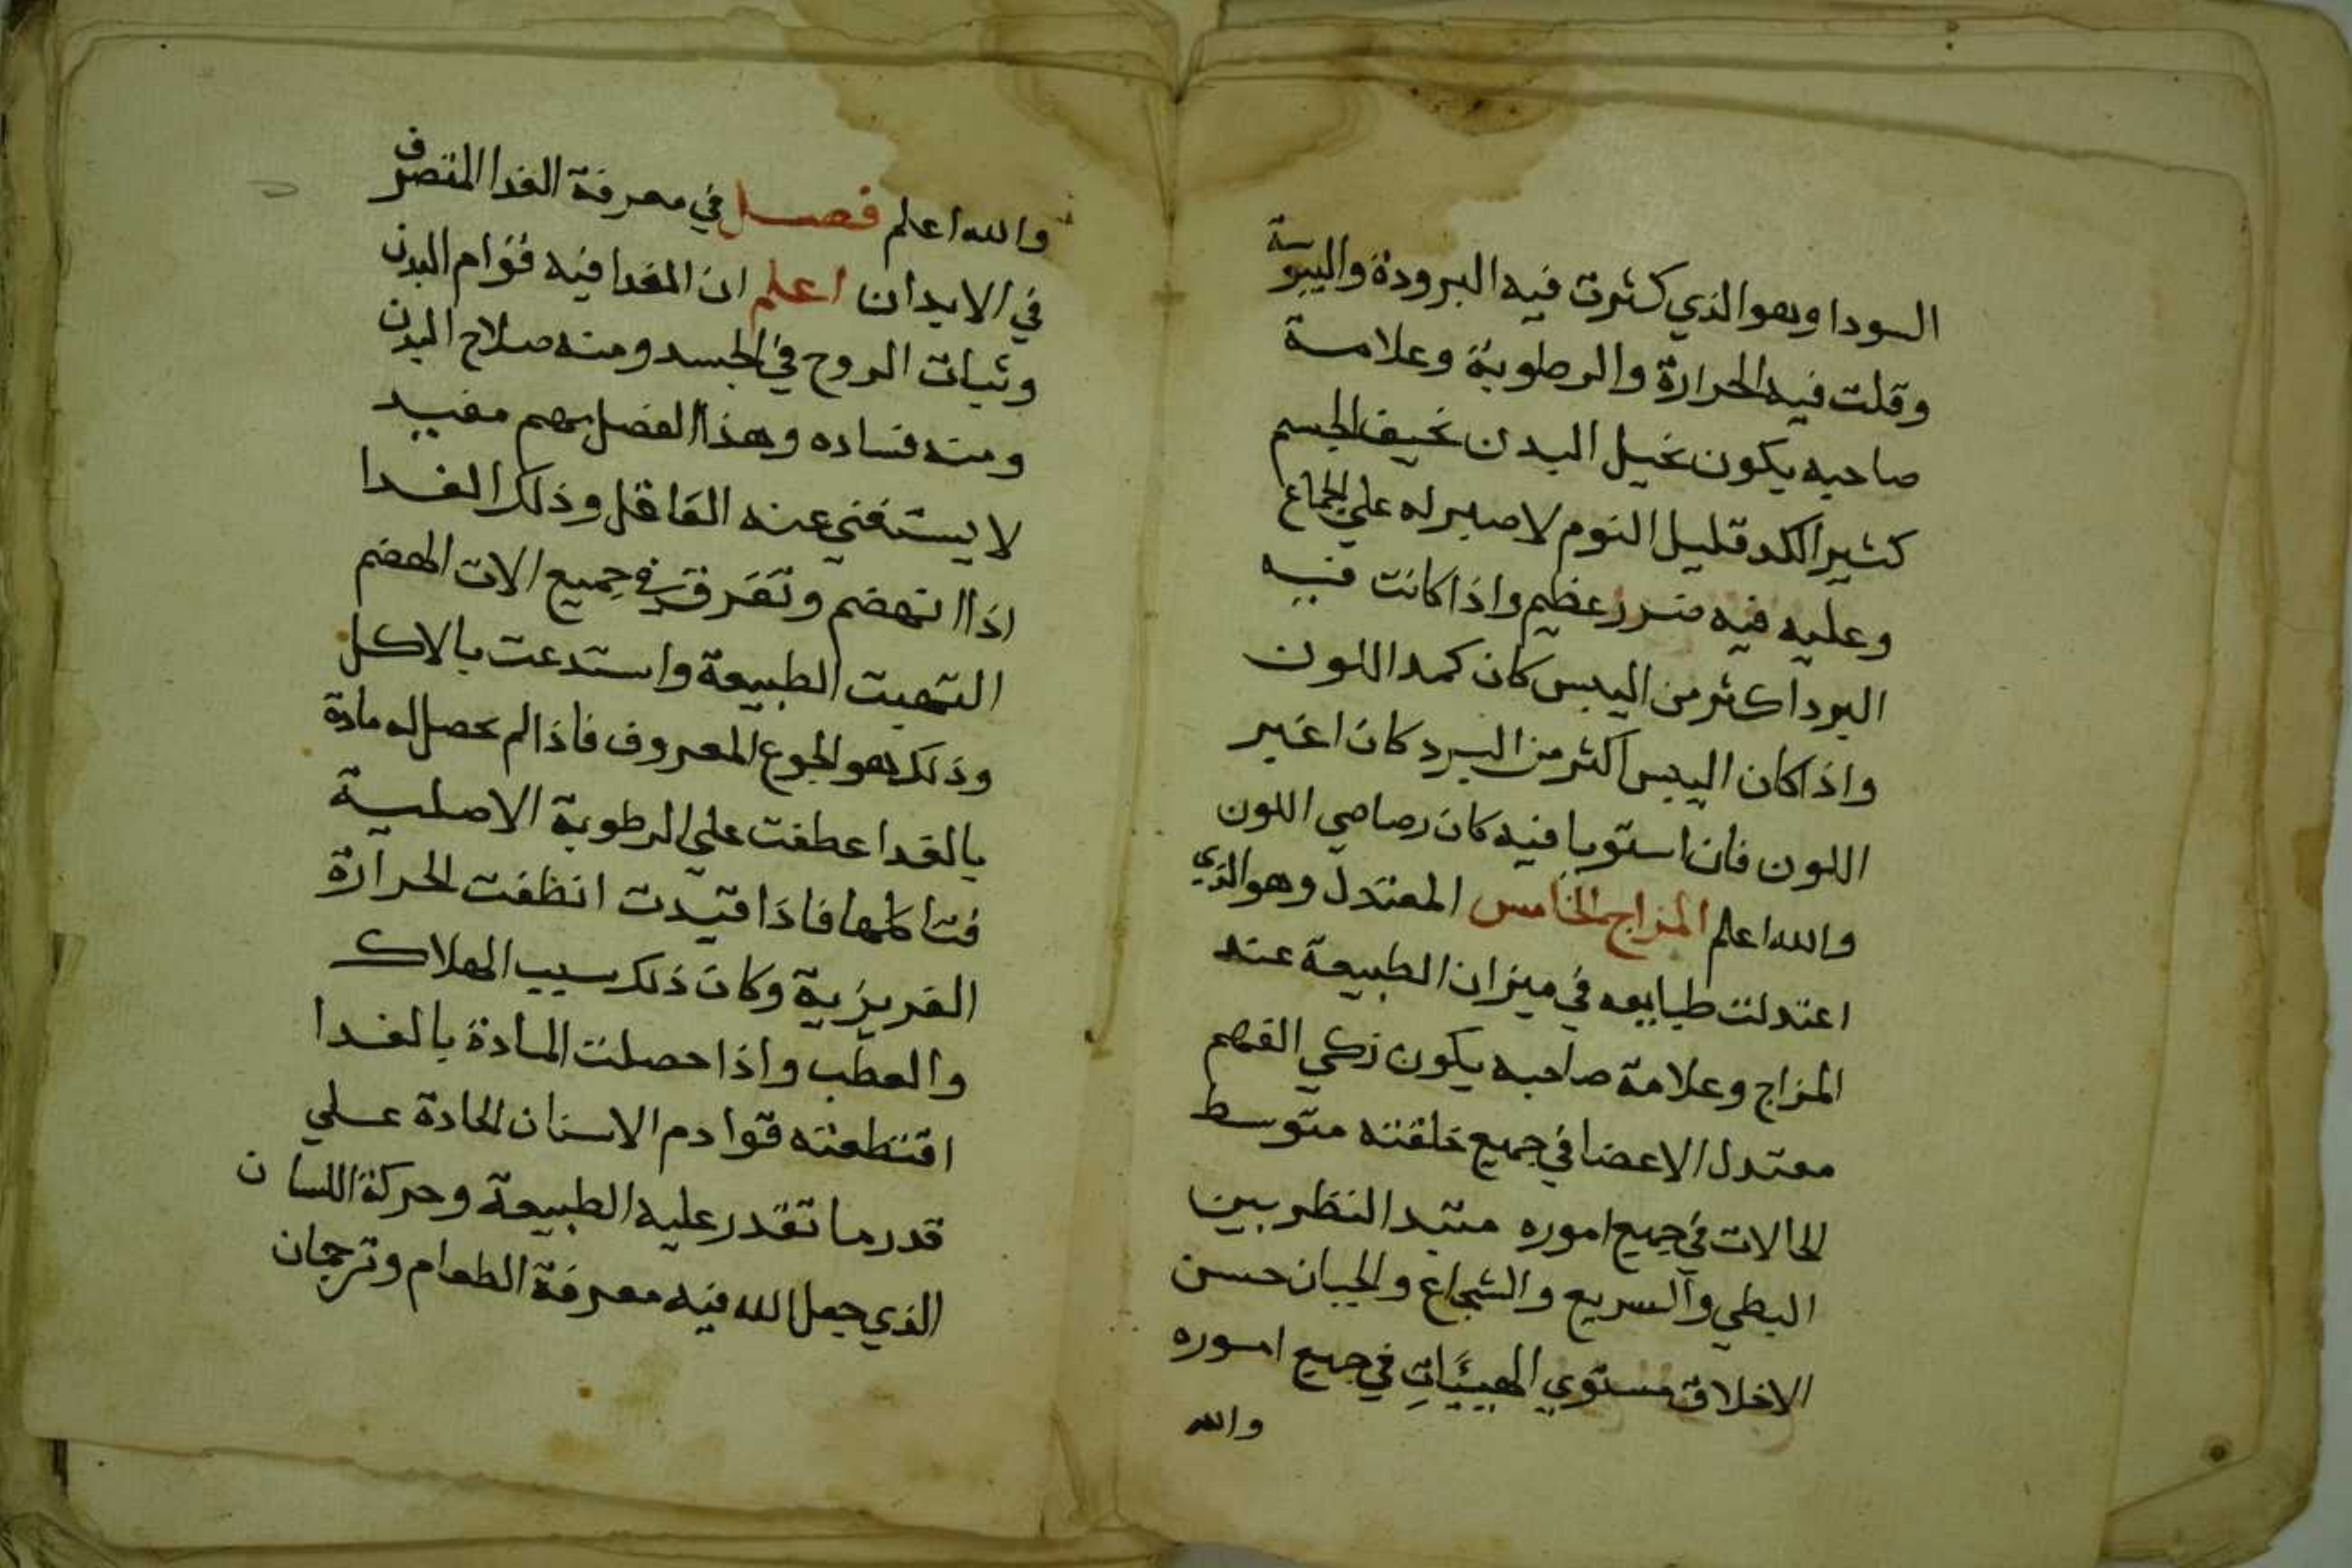 السودا وهو الذي كثرت فيه البرودة واليبوسة
وقلت فيه الحرارة والرطوبة وعلامة
صاحبه يكون نحيل البدن نحيف الجسم
كثير الكد قليل النوم لا صبر له علي الجماع
وعليه فيه ضرر عظيم واذا كانت فيه
البرد اكثر من اليبس كان كمد اللون
واذا كان اليبس اكثر من البرد كان اغبر
اللون فان استويا فيه كان رصاصي اللون
والله اعلم المزاج الخامس المعتدل وهو الذي
اعتدلت طبايعه في ميزان الطبيعة عند
المزاج وعلامة صاحبه يكون زكي الفهم
معتدل الاعضا في جميع خلقته متوسط
الحالات في جميع اموره النظر بين
البطي والسريع والشجاع والجبان حسن
الاخلاق مستوي الهيئات في جميع اموره
والله
والله اعلم فصل في معرفة الغدا المتصرف
في الابدان اعلم ان الغدا فيه قوام البدن
وثبات الروح في الجسد ومنه صلاح البدن
ومنه فساده وهذا الفصل مهم مفيد
لا يستغني عنه العاقل وذلك الغدا
اذا انهضم وتفرق في جميع الات الهضم
التهبت الطبيعة واستدعت بالاكل
وذلك هو الجوع المعروف فاذا لم يحصل له مادة
بالغدا عطفت علي الرطوبة الاصلية
فتاكلها فاذا قيدت انطفت الحرارة
الغريزية وكان ذلك سبب الهلاك
والعطب واذا حصلت المادة بالغدا
اقتطعته قوادم الاسنان الحادة علي
قدر ما تقدر عليه الطبيعة وحركة اللسان
الذي جعل الله فيه معرفة الطعام وترجمان